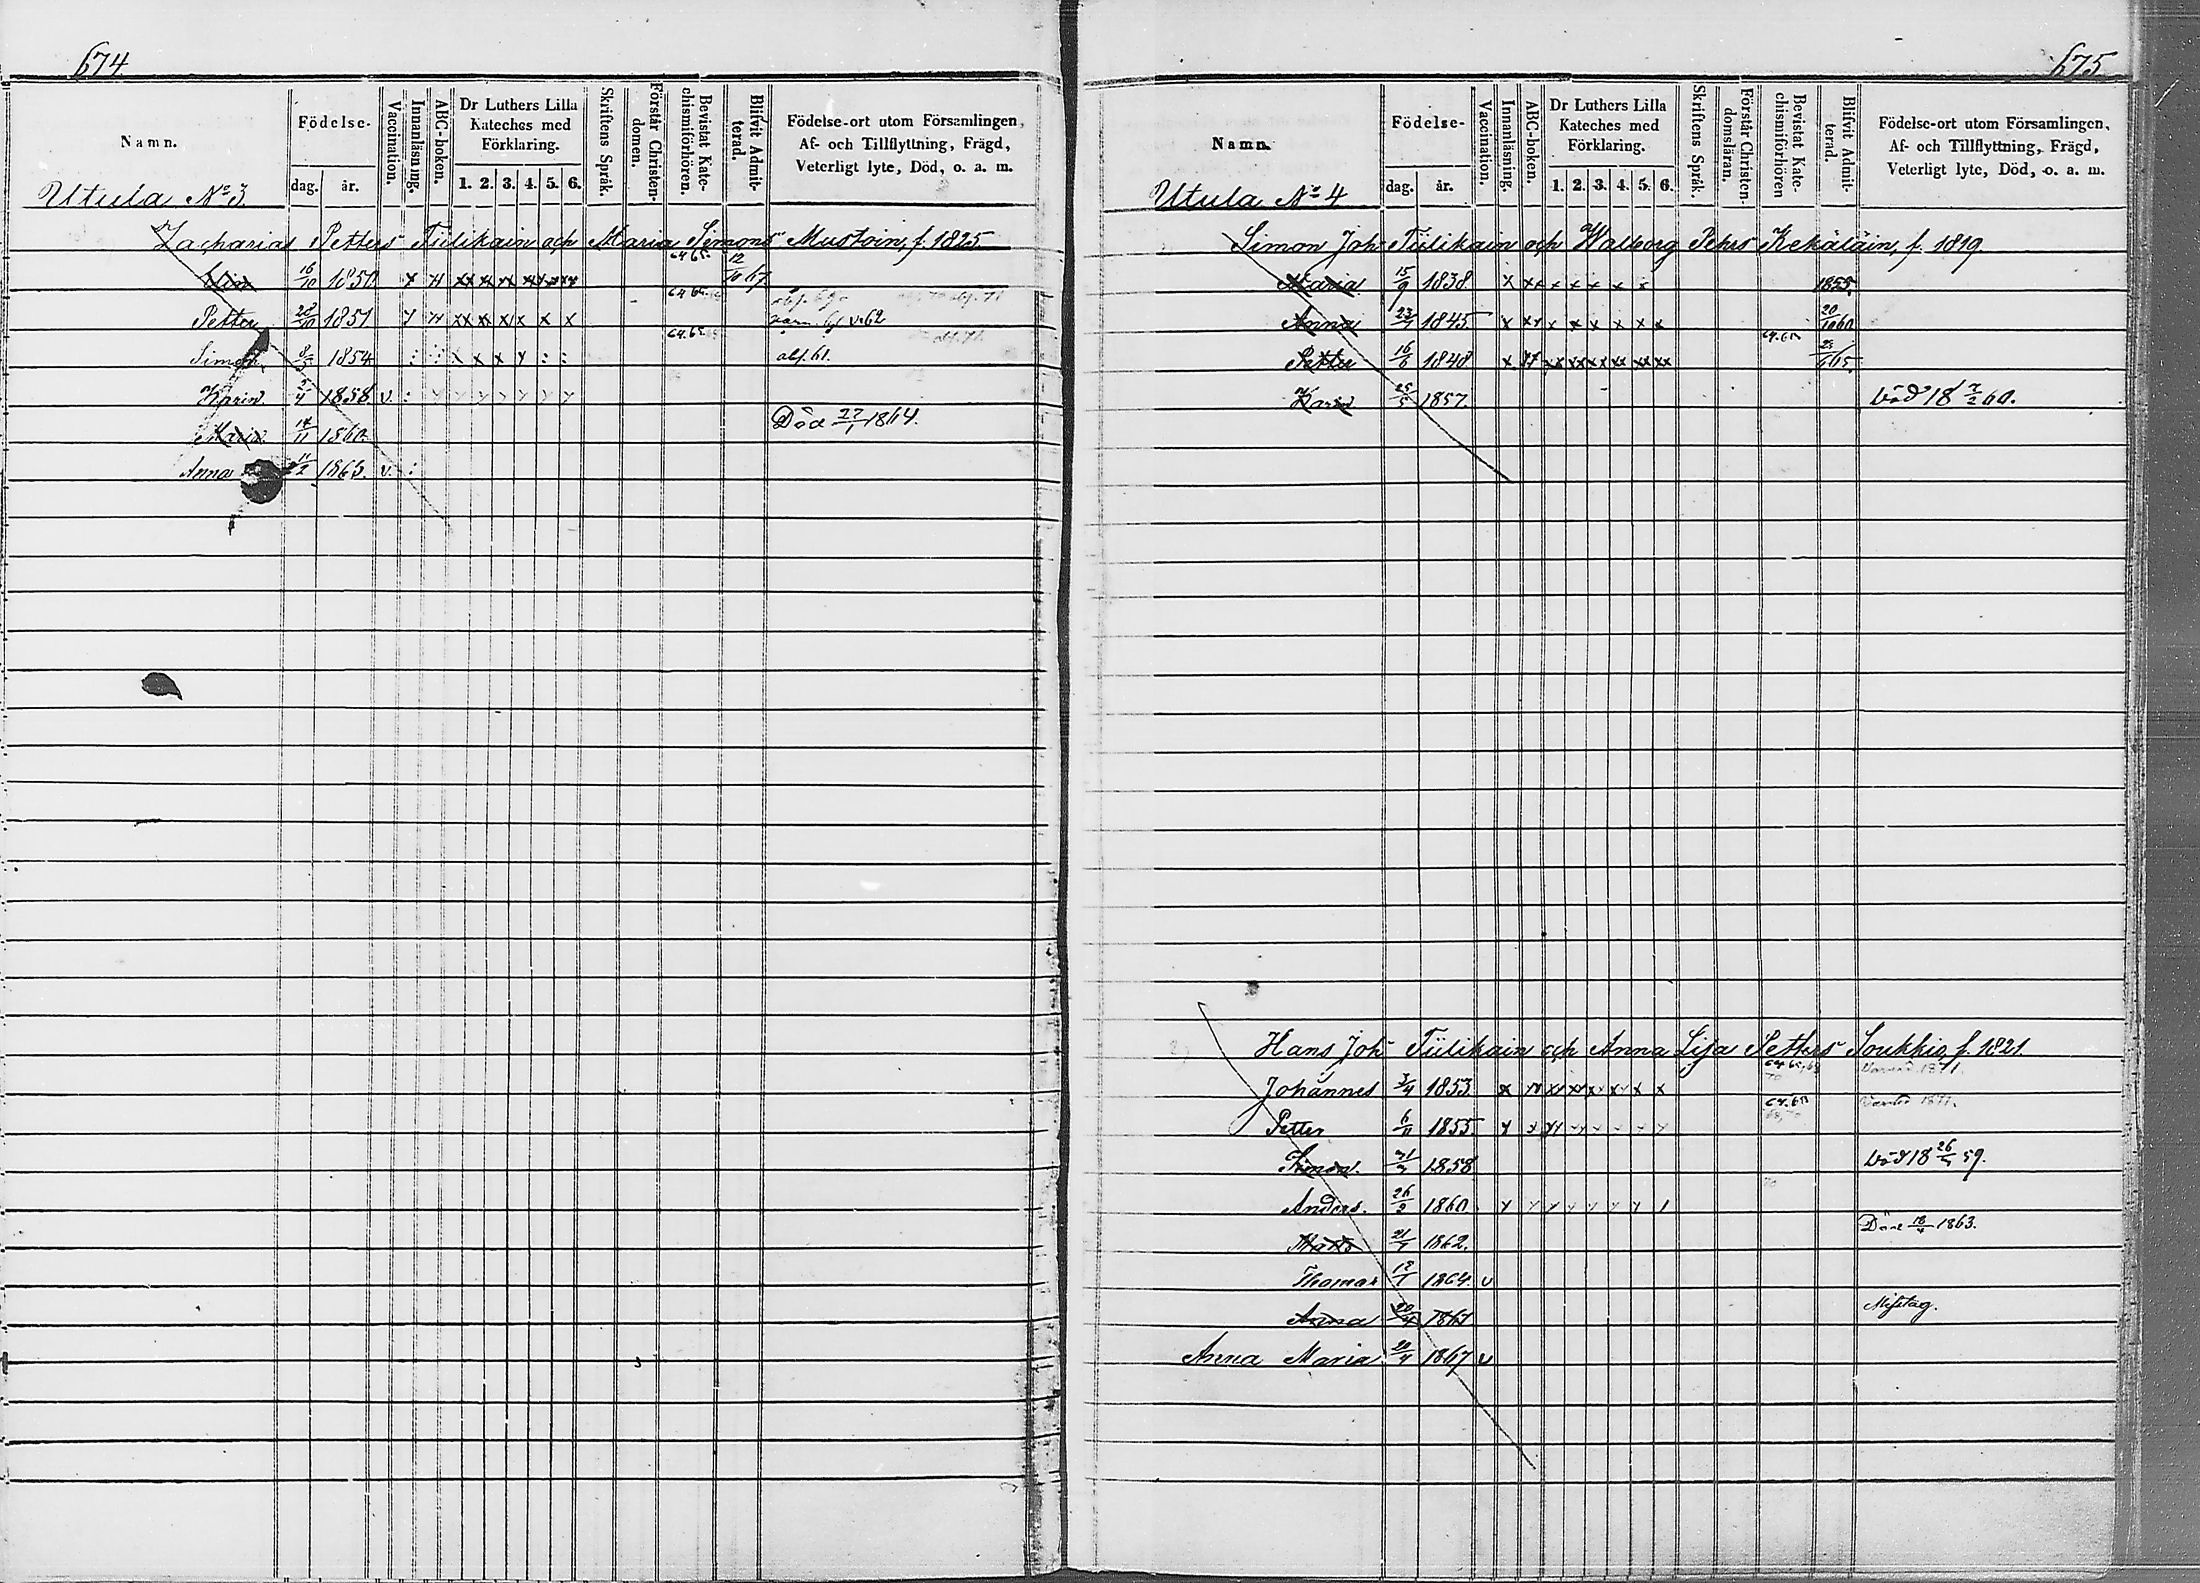 674.
Namn. Födelse- dag. år. Vaccination. Innanläsning. ABC-bokon. Dr Luthers Lilla Kateches med Förklaring. 1. 2. 3. 4. 5. 6. Skriftens Språk. Förstår Christendomen. Bevistat Katechismiförhören. Blifvit Admitterad. Födelse-ort utom Församlingen, Af- och Tillflyttning, Frägd, Veterligt lyte, Död, o. a. m.
Utula No 3.
Zacharias Petters Tiilikain och Maria Simons Mustoin, f. 1825
16/10 1850 x 64 65 12/10 67
Petter 28/10 1851 x x x x x x 64 65 62
Simon 8/3 1854 : x x x : : 64 65 abs. 61.
Karin 1858. v. :
Maria 1860 Död 27/1 1864.
Anna 11/2 1863. v. :
675
Namn. Födelse- dag. år. Vaccination. Innanläsning. ABC-bokon. Dr Luthers Lilla Kateches med Förklaring. 1. 2. 3. 4. 5. 6. Skriftens Språk. Förstår Christendomsläran. Bevistat Katechismiförhören Blifvit Admitterad. Födelse-ort utom Församlingen, Af- och Tillflyttning, Frägd, Veterligt lyte, Död, o. a. m.
Utula No 4
Simon Joh Tiilikain och Walborg Pehrs Kekäläin, f. 1819.
Maria 15/9 1838. x xx x x x x x 1855.
Anna 23/1 1845. x xx x x x x x x 20/10 60
Petter 16/6 1848. x xx xx xx xx xx xx xx 64.65 65.
Karin 25/5 1857. Död 18 7/2 60.
Hans Joh Tiilikain och Anna Lisa Petters Soukkio, f. 1821.
Johannes 3/4 1853. x x x x x x x 1871.
Petter 6/11 1855. x x 1871.
Simon. 1858 Död 18 59.
Anders. 26/2 1860.
Matts 21/7 1862. Död 18/4 1863.
Thomas 12/1 1864. v
Anna 20/4 1867 Misstag.
Anna Maria 20/4 1867 v